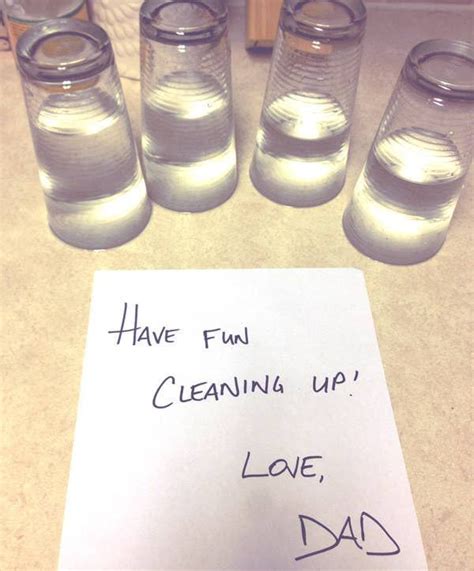 HAVE FUN
CLEANING UP!
LOVE,
DAD